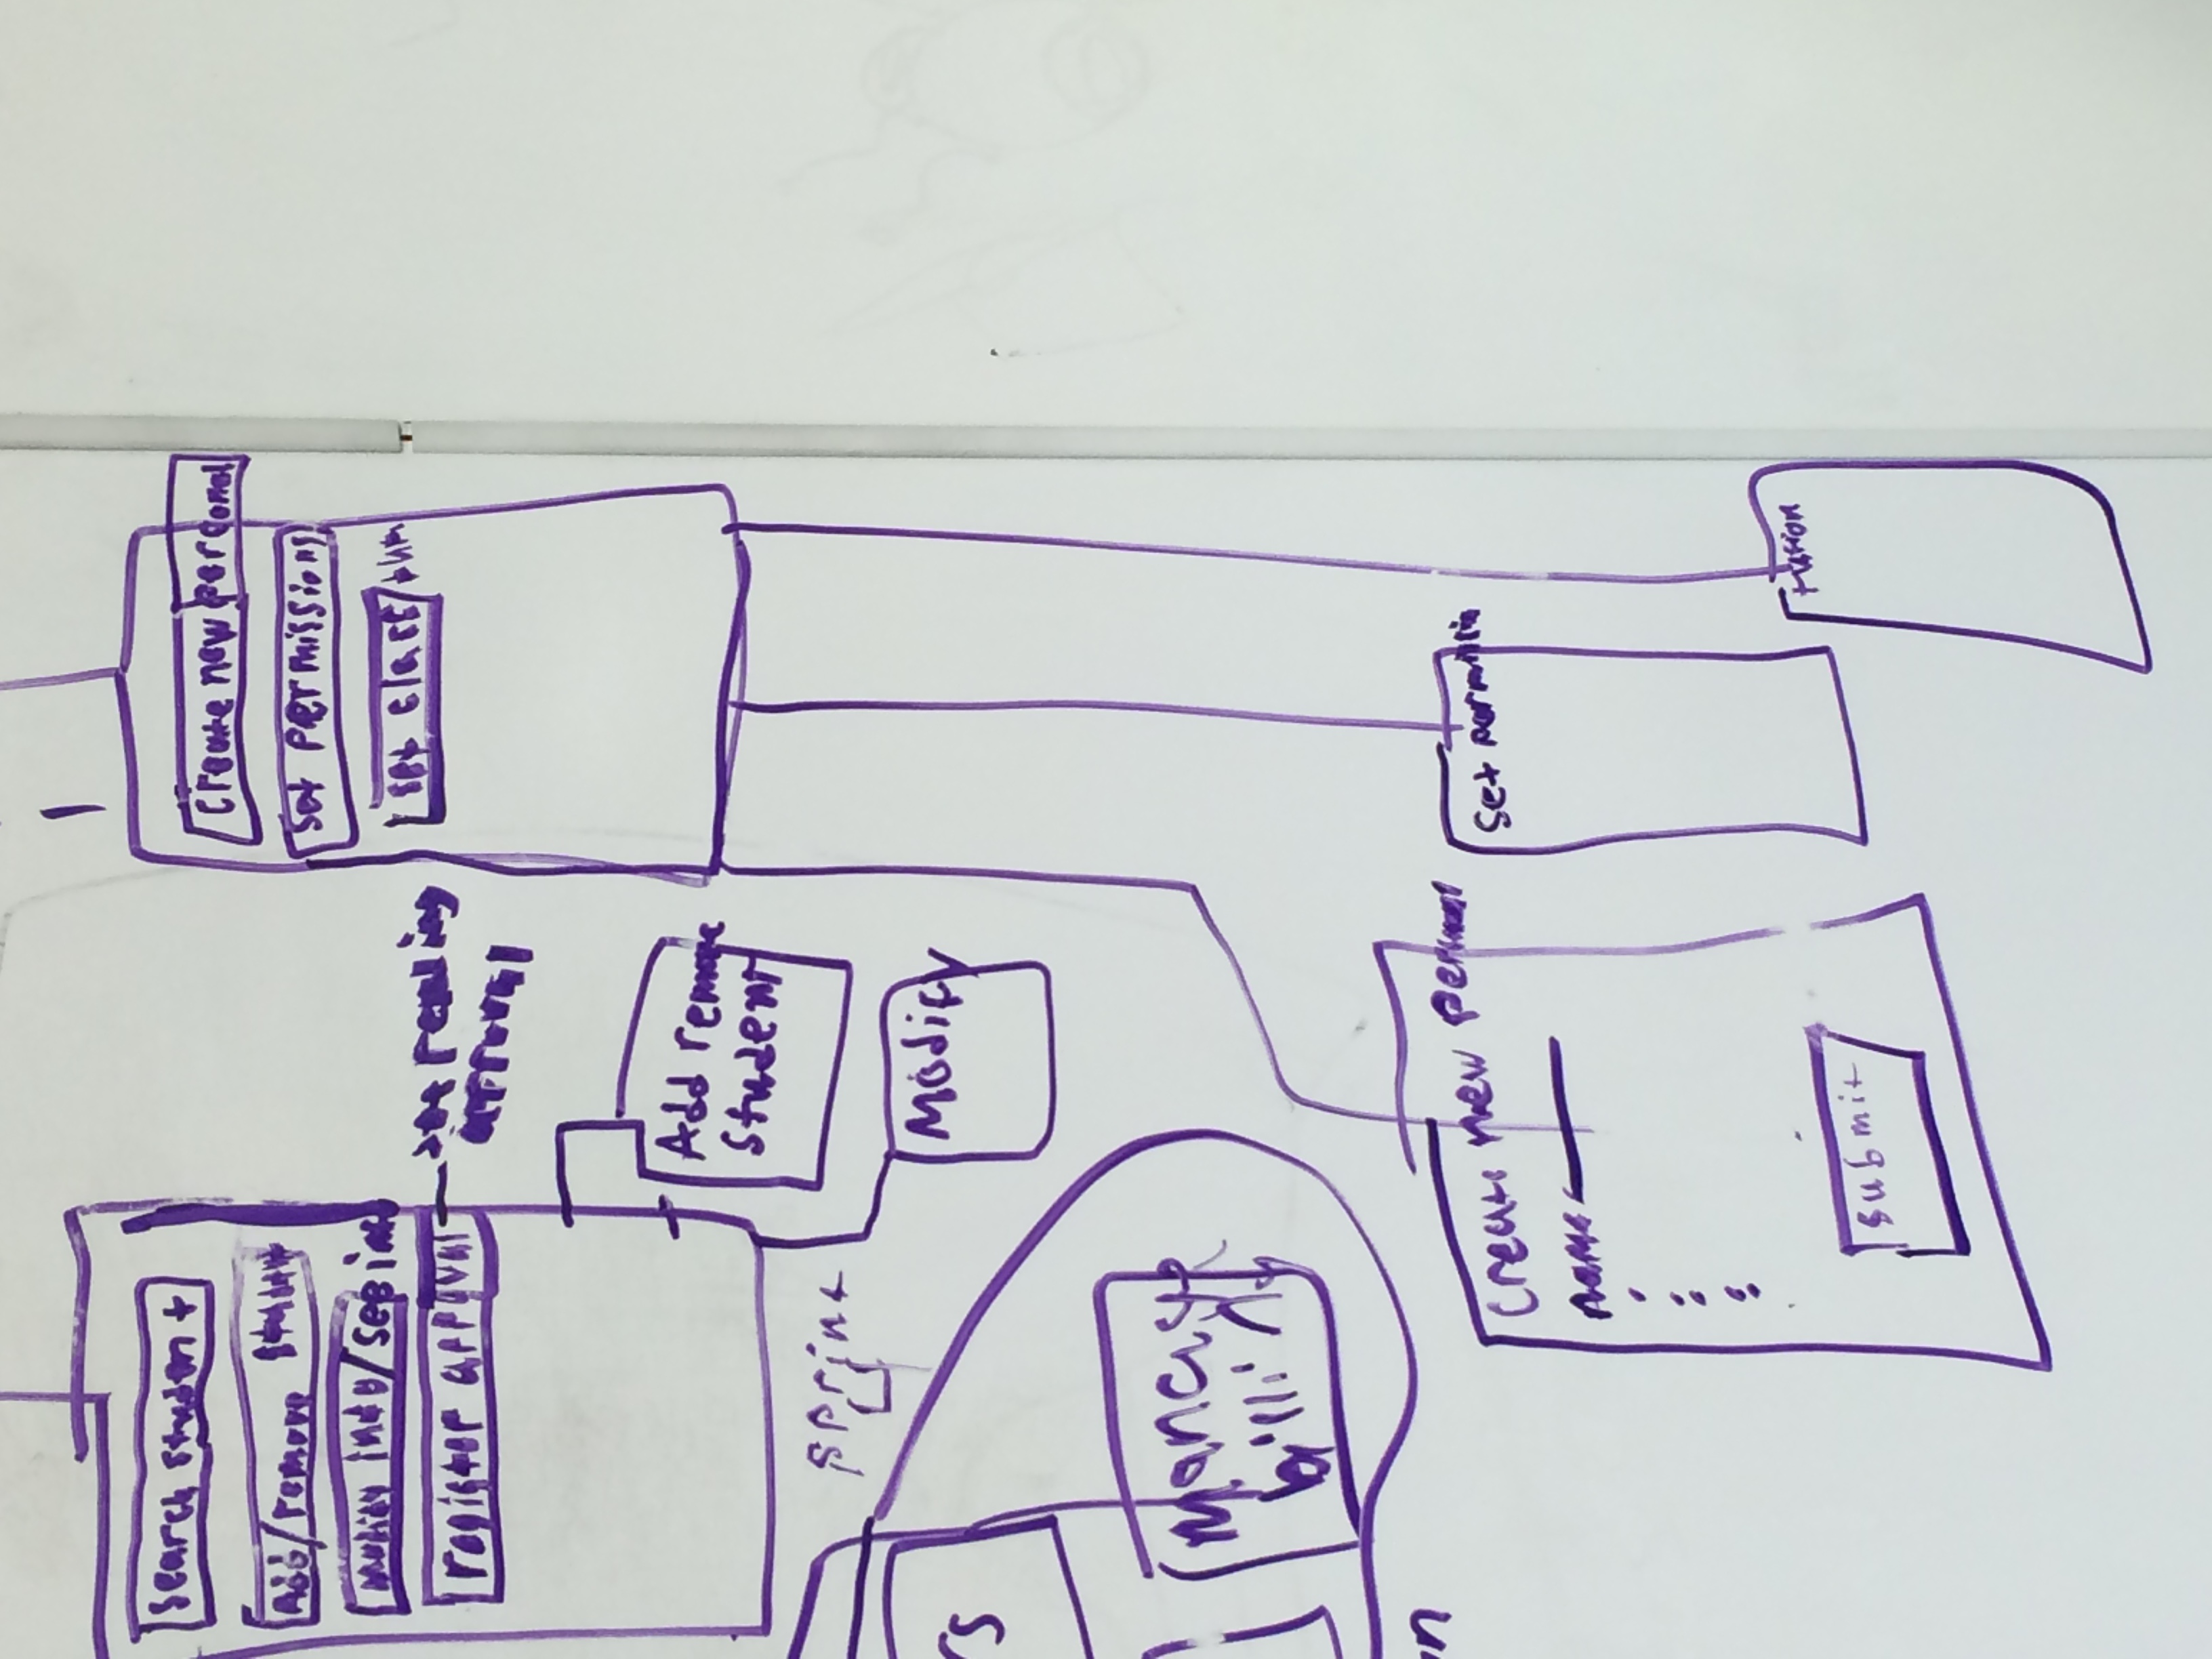 Search student
Add/remove student
modify info/see info
register approval
pending
approval
Add remove
Student
Modify
sprint
rs
Manage
billing
Create new personal
Set permissions
set class/
Create new personal
name
submit
Set permission